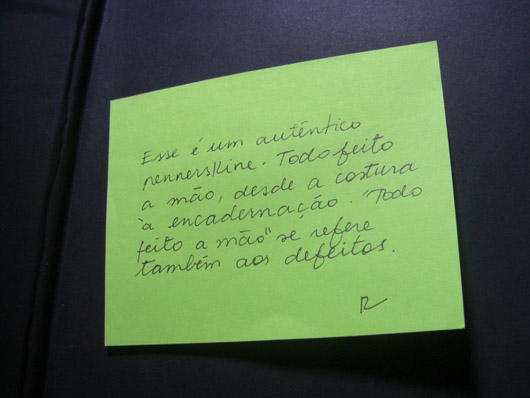 Esse é um autêntico
rennerskine. Todo feito
a mão, desde a costura
à encadernação. "Todo
feito a mão" se refere
também aos defeitos.
R